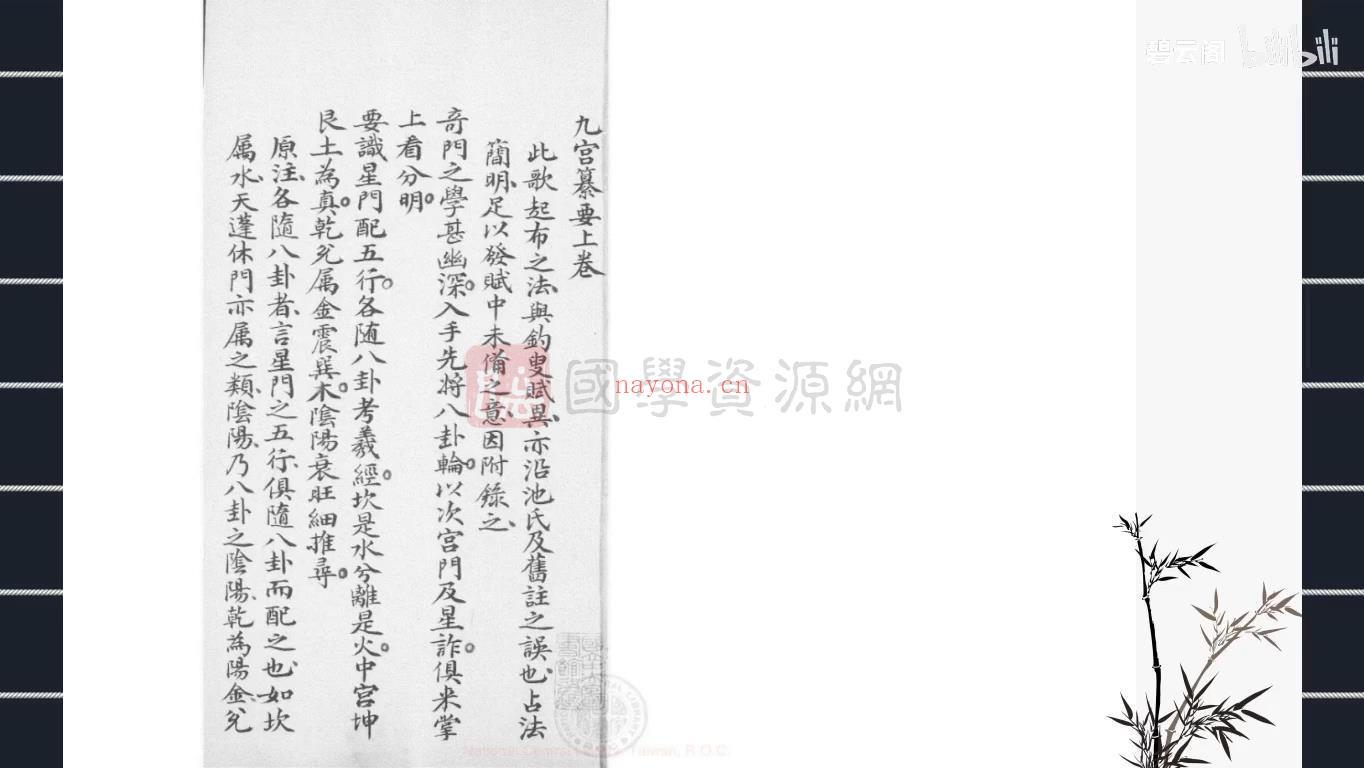 九宮纂要上卷
此歌起布之法、與釣叟賦異、亦沿池氏及舊註之誤也、占法
簡明、足以發賦中未備之意、因附錄之、
奇門之學甚幽深。入手先將八卦輪。以次宮門及星詐。俱来掌
上看分明。
要識星門配五行。各随八卦考羲經。坎是水兮離是火。中宮坤
艮土為真。乾兌属金震巽木。陰陽衰旺細推尋。
原注、各隨八卦者、言星門之五行、俱隨八卦而配之也、如坎
属水、天蓬休門亦属之類、陰陽、乃八卦之陰陽、乾為陽金、兌
碧云阁 bilibili
國學資源網
nayona.cn
National Central Library, Taiwan, R.O.C.